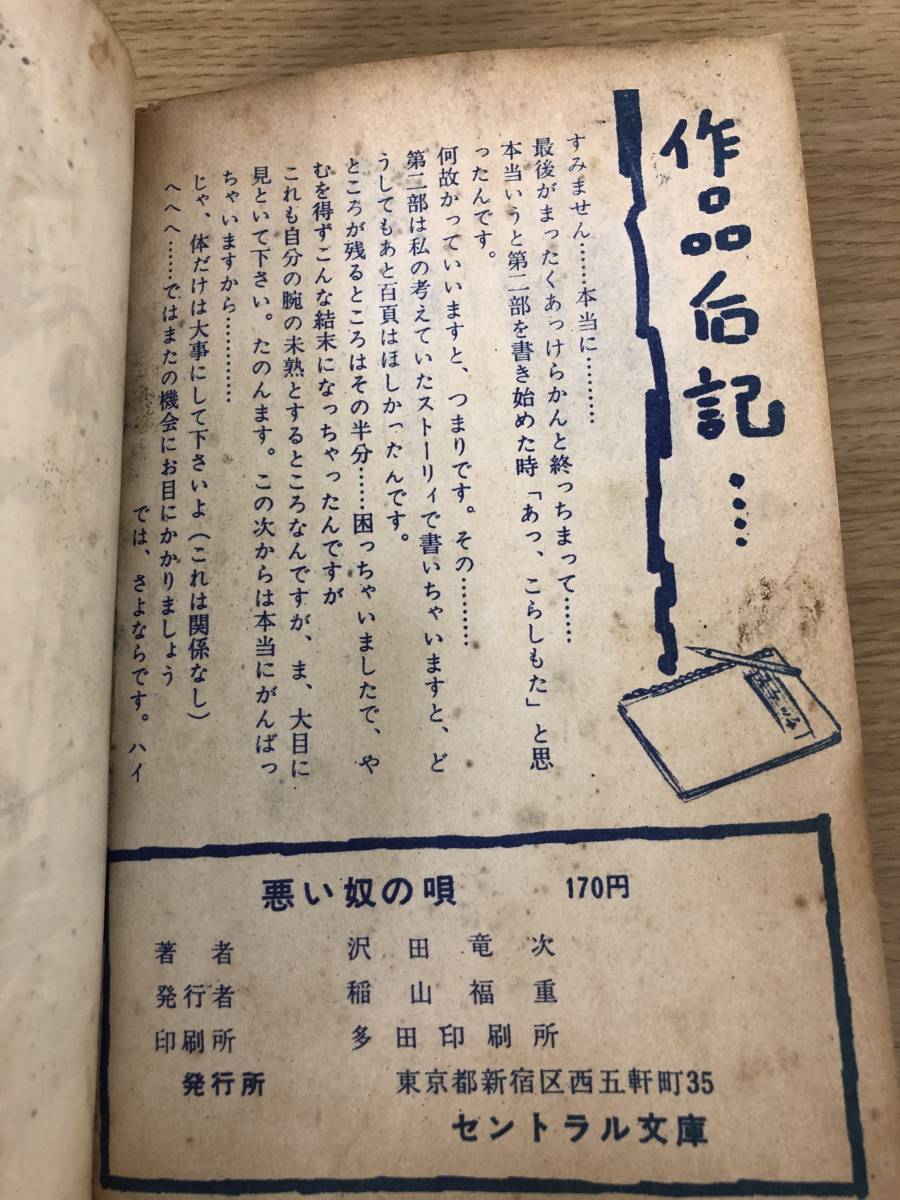 作品后記…
すみません……本当に………
最後がまったくあっけらかんと終っちまって……
本当いうと第二部を書き始めた時「あっ、こらしもた」と思
ったんです。
何故かっていいますと、つまりです。その………
第二部は私の考えていたストーリィで書いちゃいますと、ど
うしてもあと百頁はほしかったんです。
ところが残るところはその半分……困っちゃいましたで、や
むを得ずこんな結末になっちゃったんですが
これも自分の腕の未熟とするところなんですが、ま、大目に
見といて下さい。たのんます。この次からは本当にがんばっ
ちゃいますから…………
じゃ、体だけは大事にして下さいよ（これは関係なし）
へへへ……ではまたの機会にお目にかかりましょう
では、さよならです。ハイ
悪い奴の唄 170円
著者 沢田竜次
発行者 稲山福重
印刷所 多田印刷所
発行所 東京都新宿区西五軒町35
セントラル文庫